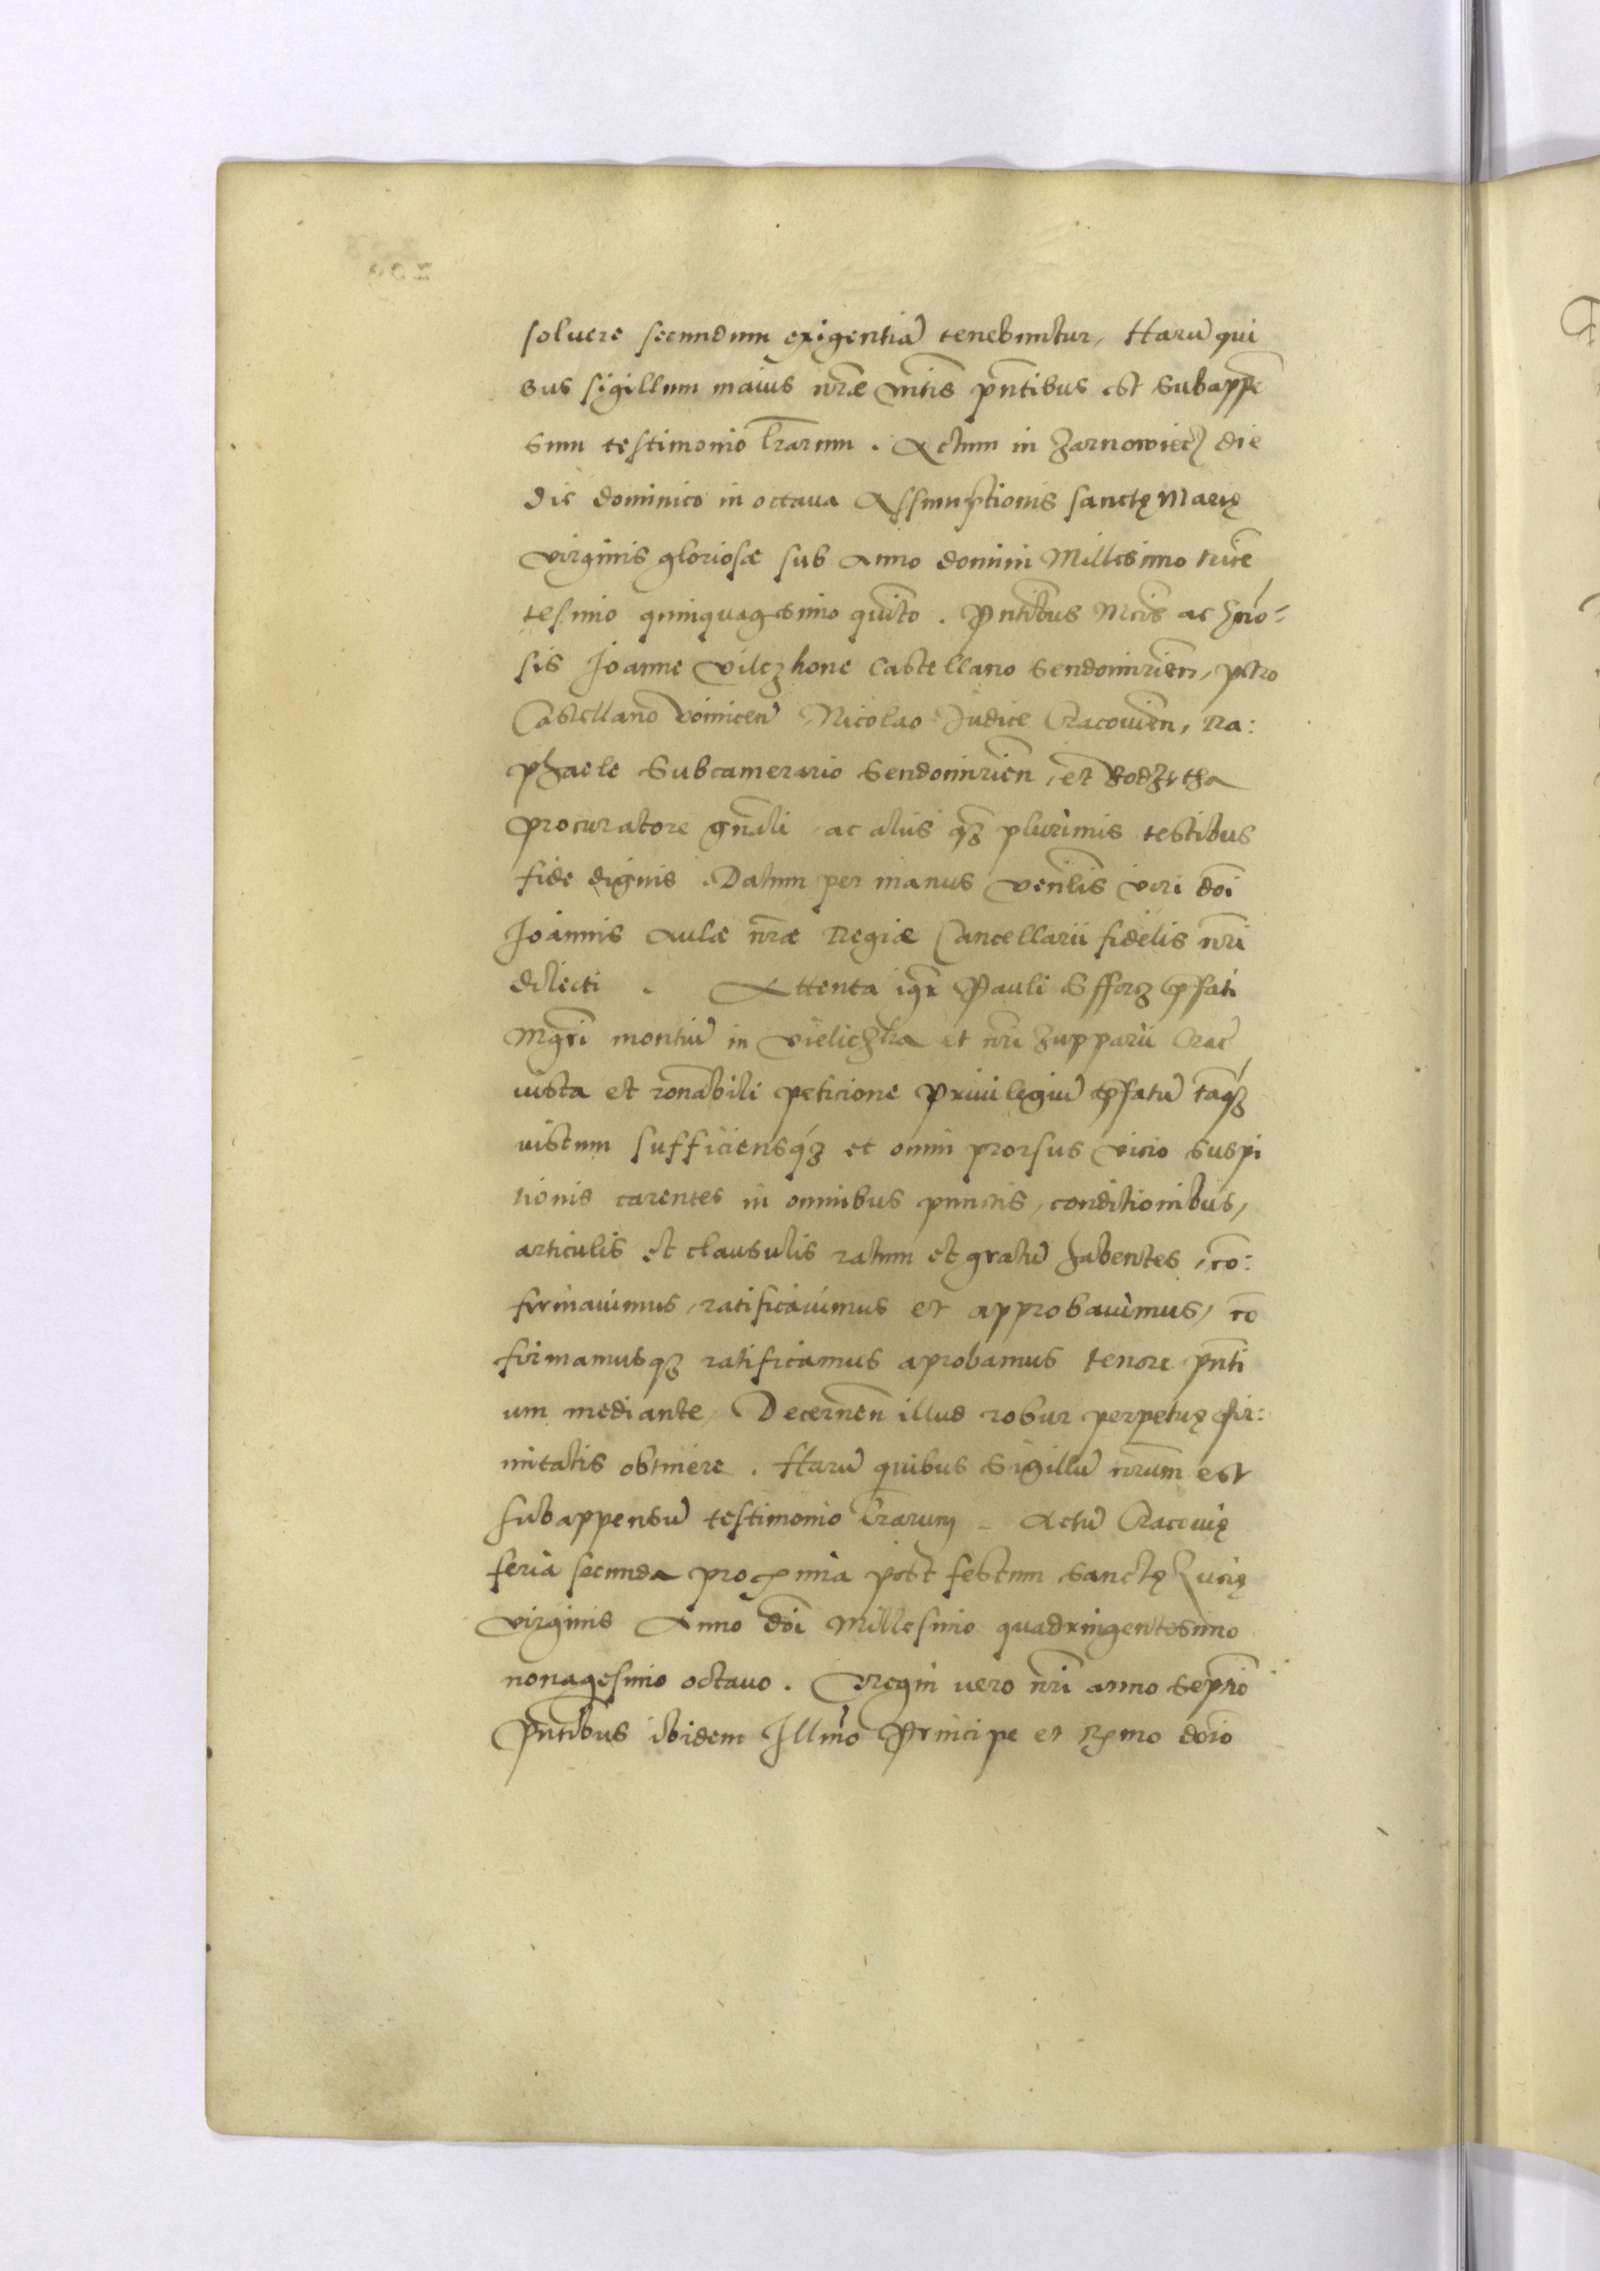 soluere secundum exigentiā tenebuntur, Harū qui
bus sigillum maius nr̄æ mtis pn̄tibus est subappē
sum testimonio lr̄arum. Actum in Zarnowiecz die
die dominico in octaua Assumptionis sanctę Marię
virginis gloriosæ sub Anno domini Millesimo tricē
tesimo quinquagesimo quīto. Pn̄tibus Mcis ac gn̄o-
sis Joanne Vilczkone Castellano Sendomirien̄, petro
Castellano Voinicen̄ Nicolao Judice Cracouien̄, Ra:
phaele Subcamerario Sendomirien̄, et Bodzytha
procuratore gn̄ali ac alijs qz plurimis testibus
fide dignis. Datum per manus Ven̄lis viri doi
Joannis Aulæ nr̄æ Regiæ Cancellarii fidelis nr̄i
dilecti. Attenta igr̄ Pauli Sfforz p̄fati
Mgr̄i montiū in Vieliczka et nr̄i Zupparii Crac̄
iusta et ronabili peticione Priuilegiū p̄fatū tāqz
iustum sufficiensqz et omni prorsus vicio suspi
tionis carentes in omnibus punctis, conditionibus,
articulis et clausulis ratum et gratū habentes, cō:
firmauimus, ratificauimus et approbauimus, cō
firmamusqz ratificamus aprobamus tenore pn̄ti
um mediante, Decernen̄ illud robur perpetuę fir:
mitatis obtinere. Harū quibus Sigillū nr̄um est
subappensū testimonio lr̄arum. Actū Cracouię
feria secunda proxima post festum sanctę Lucię
virginis Anno doi Millesimo quadringentesimo
nonagesimo octauo. Regni uero nr̄i anno septīo
Pn̄tibus ibidem Illm̄o Principe et Rx̄mo doīo